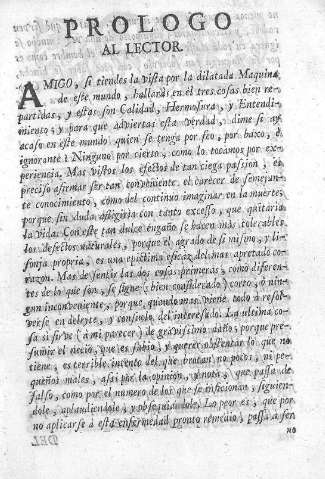 PROLOGO
AL LECTOR.
AMIGO, si tiendes la vista por la dilatada Maquina
de este mundo, hallarás en él tres cosas bien re-
partidas, y estas son Calidad, Hermosura, y Entendi-
miento; y para que adviertas esta verdad, dime si ay
acaso en este mundo quien se tenga por feo, por baxo, è
ignorante? Ninguno por cierto, como lo tocamos por ex-
periencia. Mas vistos los efectos de tan ciega passion, es
preciso afirmar ser tan conveniente el carecer de semejan-
te conocimiento, como del continuo imaginar en la muerte,
porque sin duda afligiria con tanto excesso, que quitaria
la vida. Con este tan dulce engaño se haven mas tolerables
los defectos naturales, porque el agrado de sì mismo, y li-
sonja propria, es una epictima eficaz del mas apretado co-
razon. Mas de sentir las dos cosas primeras, como diferen-
tes de lo que son, se sigue (bien considerado) corto, ò nin-
gun inconveniente, por que, quando mas viene todo à resol-
verse en deleyte, y consuelo del interesado. La ultima co-
sa si sirve (à mi parecer) de gravissimo daño; porque pre-
sumir el necio, que es sabio, y querer obstentar lo que no
tiene, es terrible incento del que brotan no pocos, ni pe-
queños males, assi por la opinion, y nota, que passa de
falso, como por el numero de los que se inficionan, siguien-
dole, aplaudiendole, y obsequiandole. Lo peor es, que por
no aplicarse à esta enfermedad pronto remedio, passa à ser
no